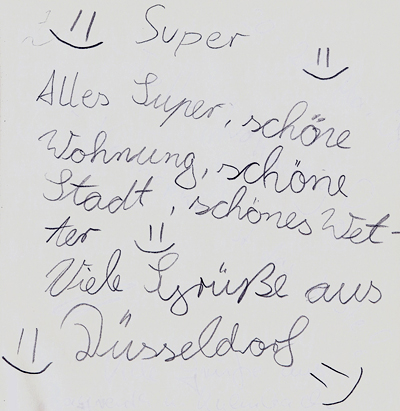 Super
Alles Super, schöne
Wohnung, schöne
Stadt, schönes Wet-
ter
Viele Grüße aus
Düsseldorf